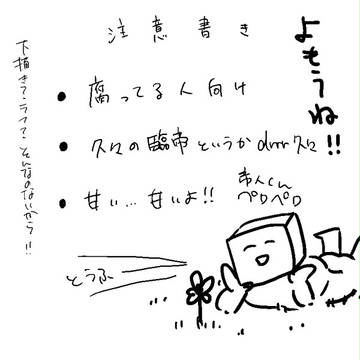 注意書き
よもうね!!
● 腐ってる人向け
● 久々の臨帝というかdrrr久々
● 甘い…甘いよ!!
帝人くん
ペロペロ
とうふ
下描き?ラフ?そんなのないから!!